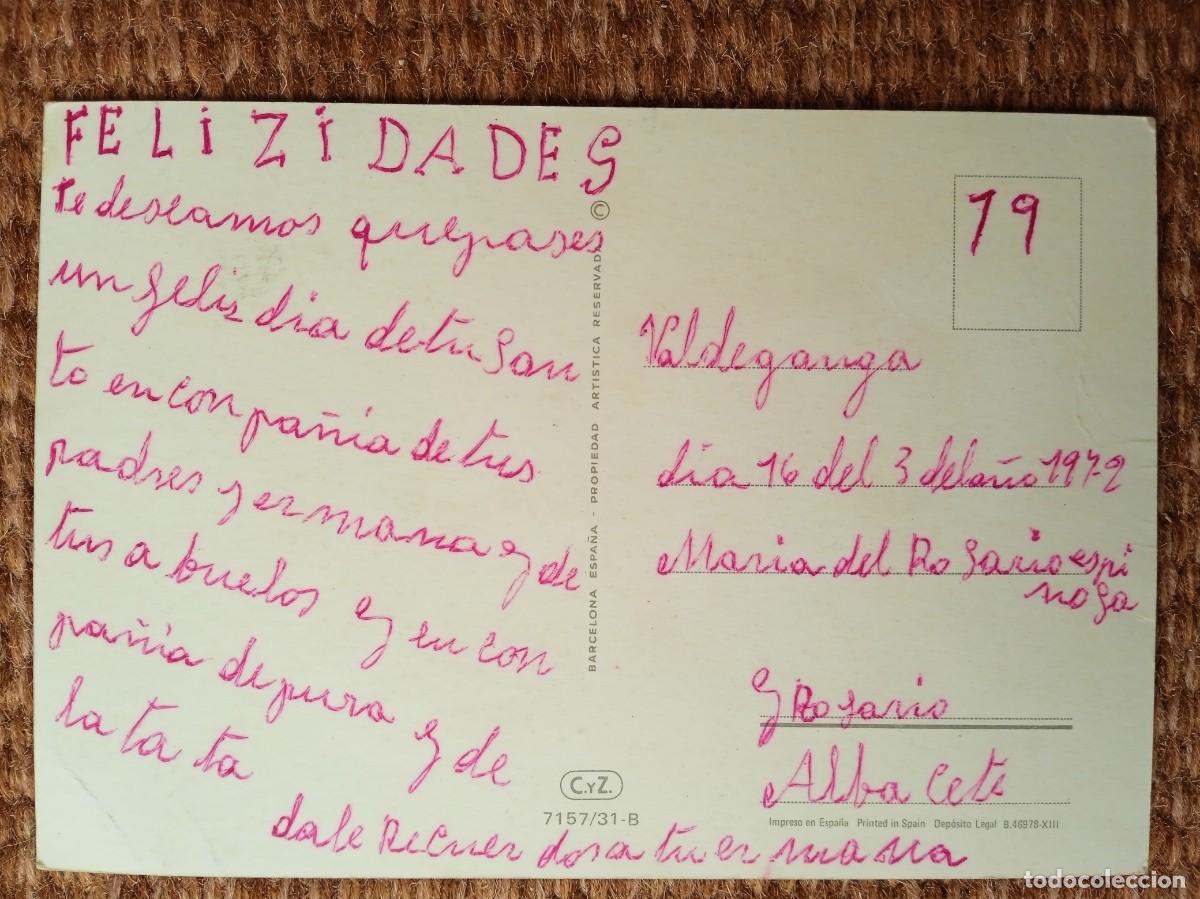 FELiZiDADES
te deseamos quepases
un feliz dia de tu San
to en con pañia de tus
padres y ermana y de
tus a buelos y en con
pañia de pura y de
la ta ta
dale Recuer dos a tu er mana
19
Valdeganga
dia 16 del 3 del año 1972
Maria del Rosario espi
nosa
y Rosario
Alba Cete
©
BARCELONA ESPAÑA - PROPIEDAD ARTISTICA RESERVADA
C.YZ.
7157/31-B
Impreso en España Printed in Spain Depósito Legal B.46978-XIII
todocoleccion